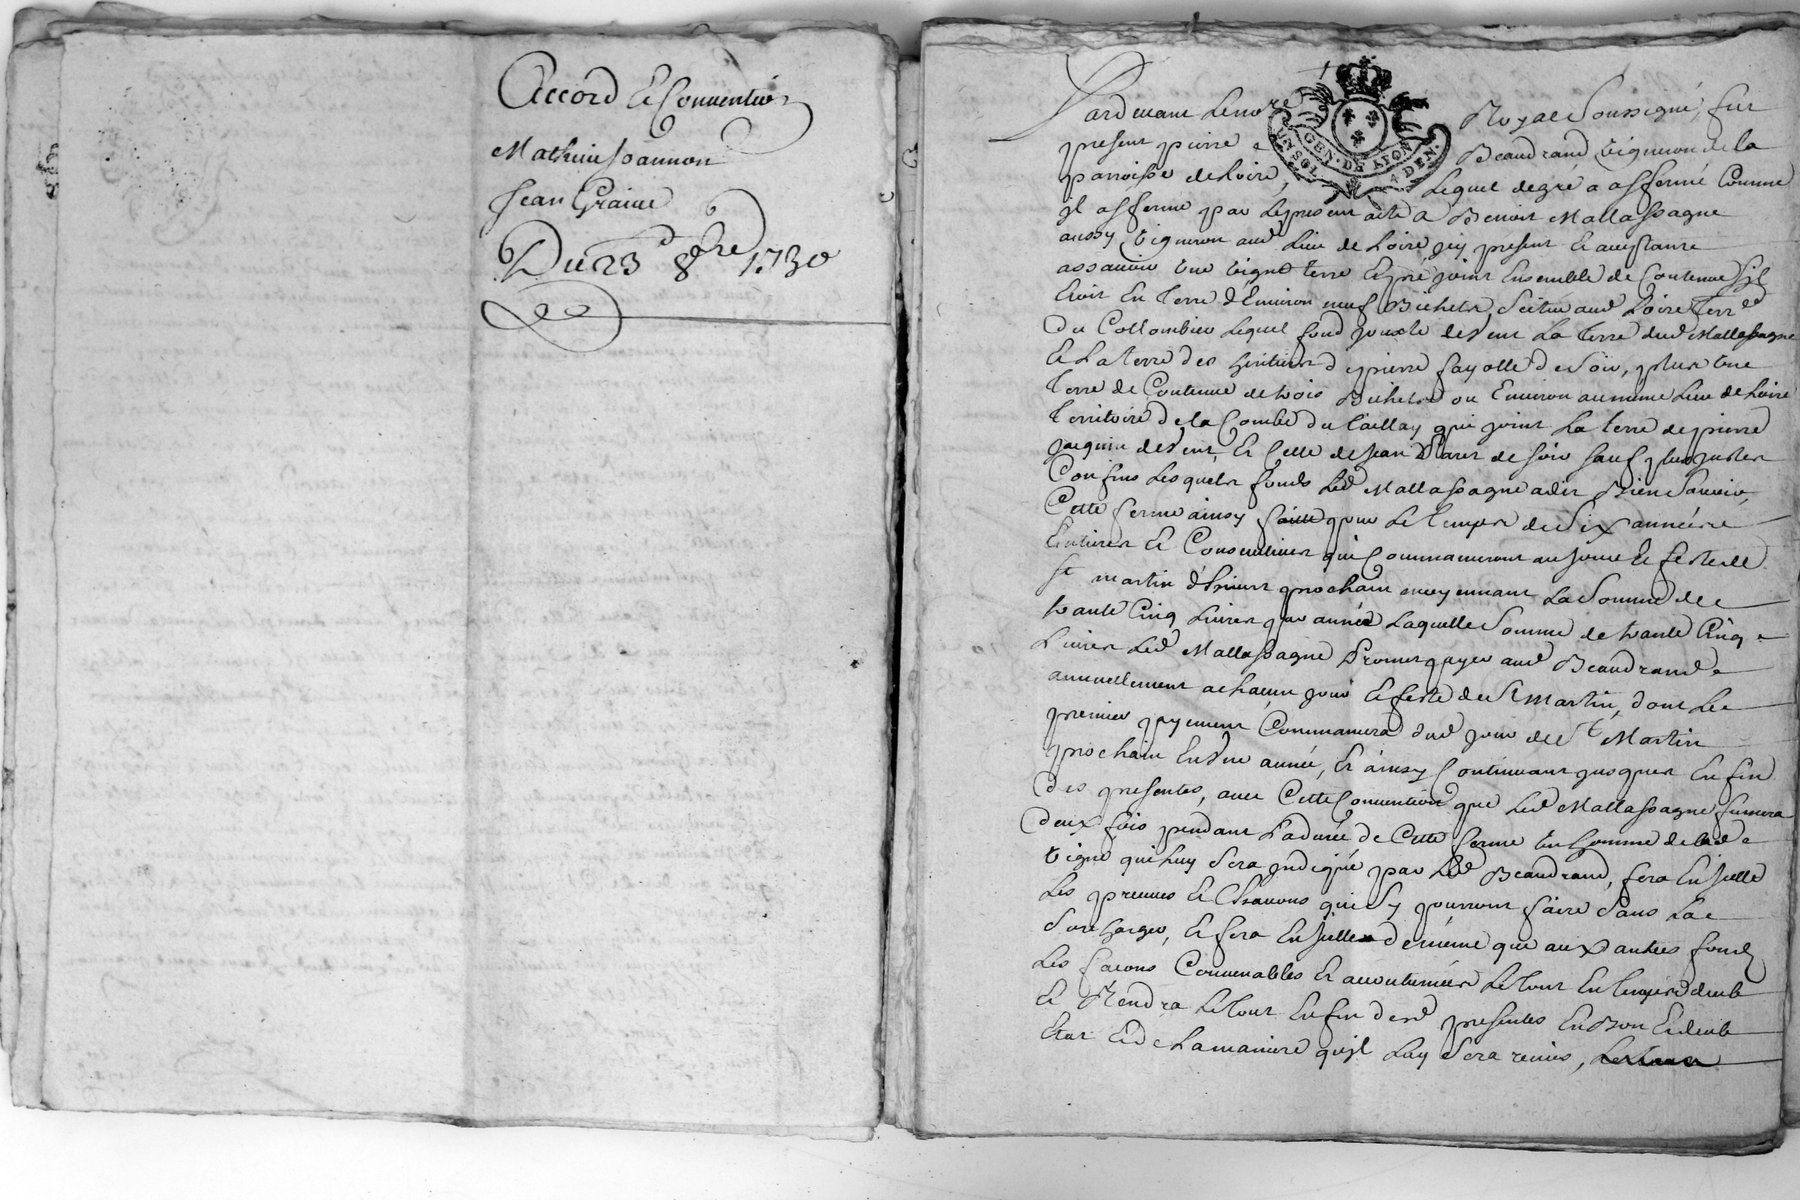 Accord et Convention
Mathieu Joannon
Jean Graine
Du 23e 8bre 1730
Pardevant le nore Royal Soussigné, fut
GEN. DE LYON
UN SOL 4 DEN.
present pierre Beaudrand vigneron de la
parroisse de Loire, Lequel de gré a affermé Comme
jl afferme par le present acte a Benoit Mallassagne
aussy vigneron aud Lieu de Loire jcy present et acceptant
assavoir une vigne terre et pré joint Ensemble de Contenue
Soit En terre d'Environ neuf Bichets, Scitué aud Loire Terre
du Collombier Lequel fond jouxte de vent La terre dud Mallassagne
et La terre des heritiers de pierre fayolle de soir, plus une
terre de Contenue de trois Bichets ou Environ au mesme Lieu de Loire
Territoire de la Combe du taillay qui joint La terre de pierre
jacquin de vent, et Celle de Jean de soir sauf plus justes
Confins Lesquels fonds Led Mallassagne a dit Bien Sçavoir,
Cette ferme ainsy faitte pour Le temps de Six années
Entieres et Consecutives qui Commanceront au jour et feste de
st martin d'hiver prochain moyennant La Somme de
trante Cinq Livres par année Laquelle Somme de trante Cinq
Livres Led Mallassagne Promet payer aud Beaudrand
annuellement a chacun jour et feste de St Martin, dont Le
premier payement Commancera dud jour de St Martin
prochain En une année, et ainsy Continuant jusques En fin
des presentes, avec Cette Convention que Led Mallassagne fumera
deux fois pendant La durée de Cette ferme un homme de lad
vigne qui luy Sera jndiqué par Led Beaudrand, fera En jcelle
Les preuves et Chavons qui Sy pourront faire Sans La
Surcharger, et fera En jcelle de même que aux autres fonds
Les façons Convenables et accoutumées Le tout En temps deub
et Rendra Le tout En fin desd presentes En Bon et deub
Etat et de La maniere qu'jl Luy Sera remis,